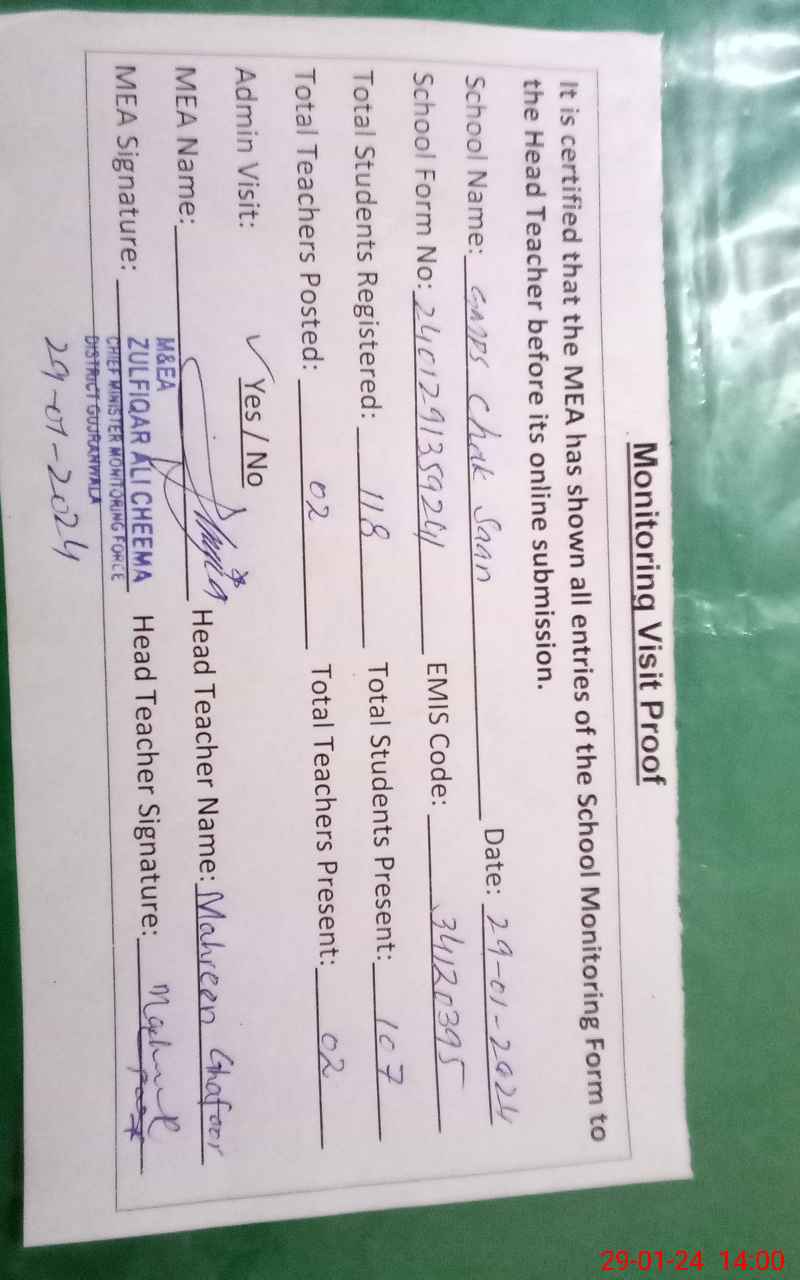 Monitoring Visit Proof
It is certified that the MEA has shown all entries of the School Monitoring Form to
the Head Teacher before its online submission.
School Name: GMPS Chak Saan Date: 29-01-2024
School Form No: 2401291359241 EMIS Code: 34120395
Total Students Registered: 118 Total Students Present: 107
Total Teachers Posted: 02 Total Teachers Present: 02
Admin Visit: ✓ Yes / No
MEA Name: Head Teacher Name: Mahreen Ghafoor
MEA Signature: Head Teacher Signature:
M&EA
ZULFIQAR ALI CHEEMA
CHIEF MINISTER MONITORING FORCE
DISTRICT GUJRANWALA
29-01-2024
29-01-24 14:00